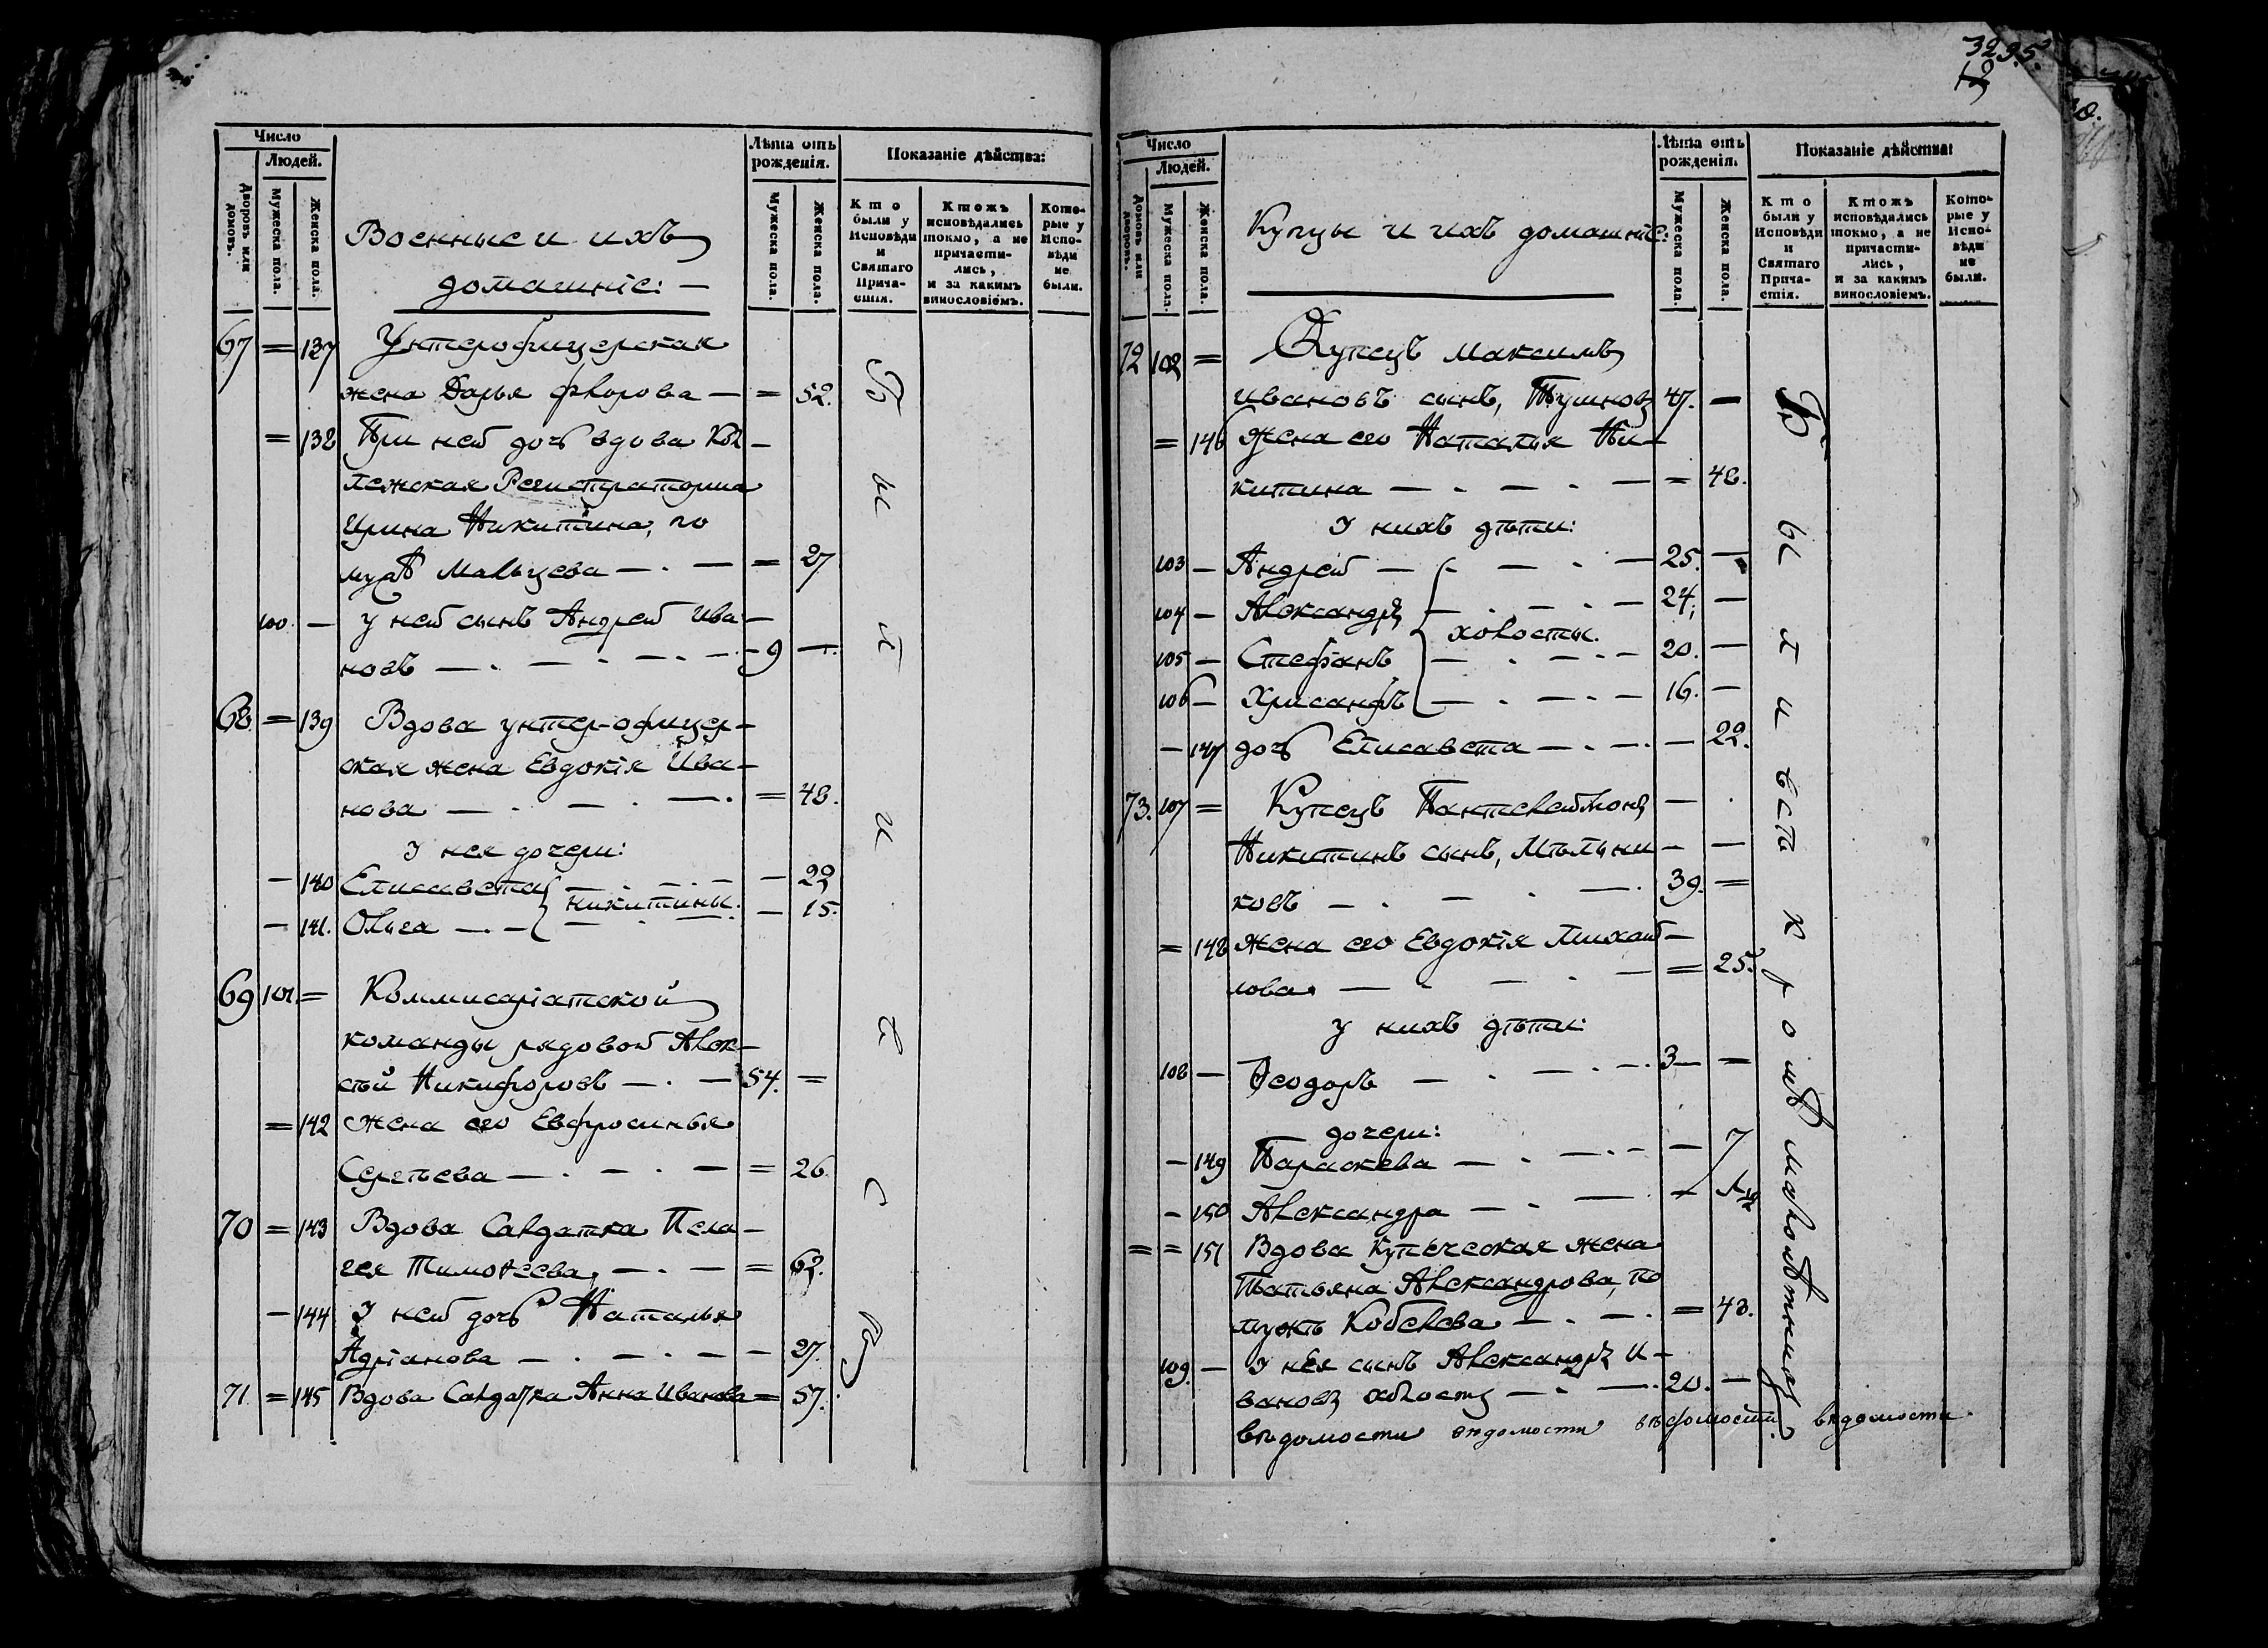 Число
Людей.
Дворовъ или домовъ.
Мужеска пола.
Женска пола.
Военные и ихъ
домашніе: —
Лѣта отъ рожденія.
Мужеска пола.
Женска пола.
Показаніе дѣйства:
Кто были у Исповѣди и Святаго Прича- стія.
Ктожъ исповѣдались токмо, а не причасти- лись, и за какимъ винословіемъ.
Кото- рые у Испо- вѣди не были.
67 = 137 Унтерофицерская
жена Дарья Флорова — = 52.
= 138 При ней дочь вдова Кол-
лежская Регистраторша
Ирина Никитина, по
мужѣ Мальцева — . — = 27
100. — у ней сынъ Андрей Ива-
новъ — . — . — . — . — 9 —.
68. = 139 Вдова унтер-офицер-
ская жена Евдокія Ива-
нова — . — . — . = 48.
У нея дочери:
— 140 Елисавета — . — . — — 22
никитины.
— 141. Ольга — . — — . — — 15.
69 101. = Коммисаріатской
команды рядовой Алек-
сѣй Никифоровъ — . — 54. =
= 142 Жена его Евфросинья
Сергѣева — . — . — = 26.
70 = 143 Вдова Салдатка Пела-
гея Тимоѳеева, — . — = 62.
— 144 У ней дочь Наталья
Адріанова — . — . — — 27.
71. = 145 Вдова Салдатка Анна Иванова = 57.
Были
всѣ
3295.
Число
Людей.
Домовъ или дворовъ.
Мужеска пола.
Женска пола.
Купцы и ихъ домашніе:
Лѣта отъ рожденія.
Мужеска пола.
Женска пола.
Показаніе дѣйства:
Кто были у Исповѣди и Святаго Прича- стія.
Ктожъ исповѣдались токмо, а не причасти- лись, и за какимъ винословіемъ.
Кото- рые у Испо- вѣди не были.
72 102 = Купецъ Максимъ
Ивановъ сынъ, Тушновъ 47. —
= 146 Жена его Наталья Ни-
китина — . — . — = 48.
У нихъ дѣти:
103 — Андрей — — . — 25. —
104 — Александръ — . — . — 24; —
холосты.
105 — Стефанъ — . — . — 20. —
106 — Хрисанфъ — . — . — 16. —
— 147 дочь Елисавета — . — . — 22.
73. 107 = Купецъ Пантелеймонъ — .
Никитинъ сынъ, Мѣльни- —
ковъ — . — . — . 39. =
= 148 Жена его Евдокія Михай-
лова — . — . — = 25.
у нихъ дѣти:
108 — Ѳеодоръ — . — . — 3 — =
дочери:
— 149 Параскева — . — . — — 7
— 150 Александра — . — —
= = 151 Вдова Купеческая жена
Татьяна Александрова, по
мужѣ Кобелева — . — . = 43.
109. — У нея сынъ Александръ И-
вановъ холостъ — . — . 20. —
вѣдомости вѣдомости вѣдомости вѣдомости
Были всѣ кромѣ малолѣтнихъ